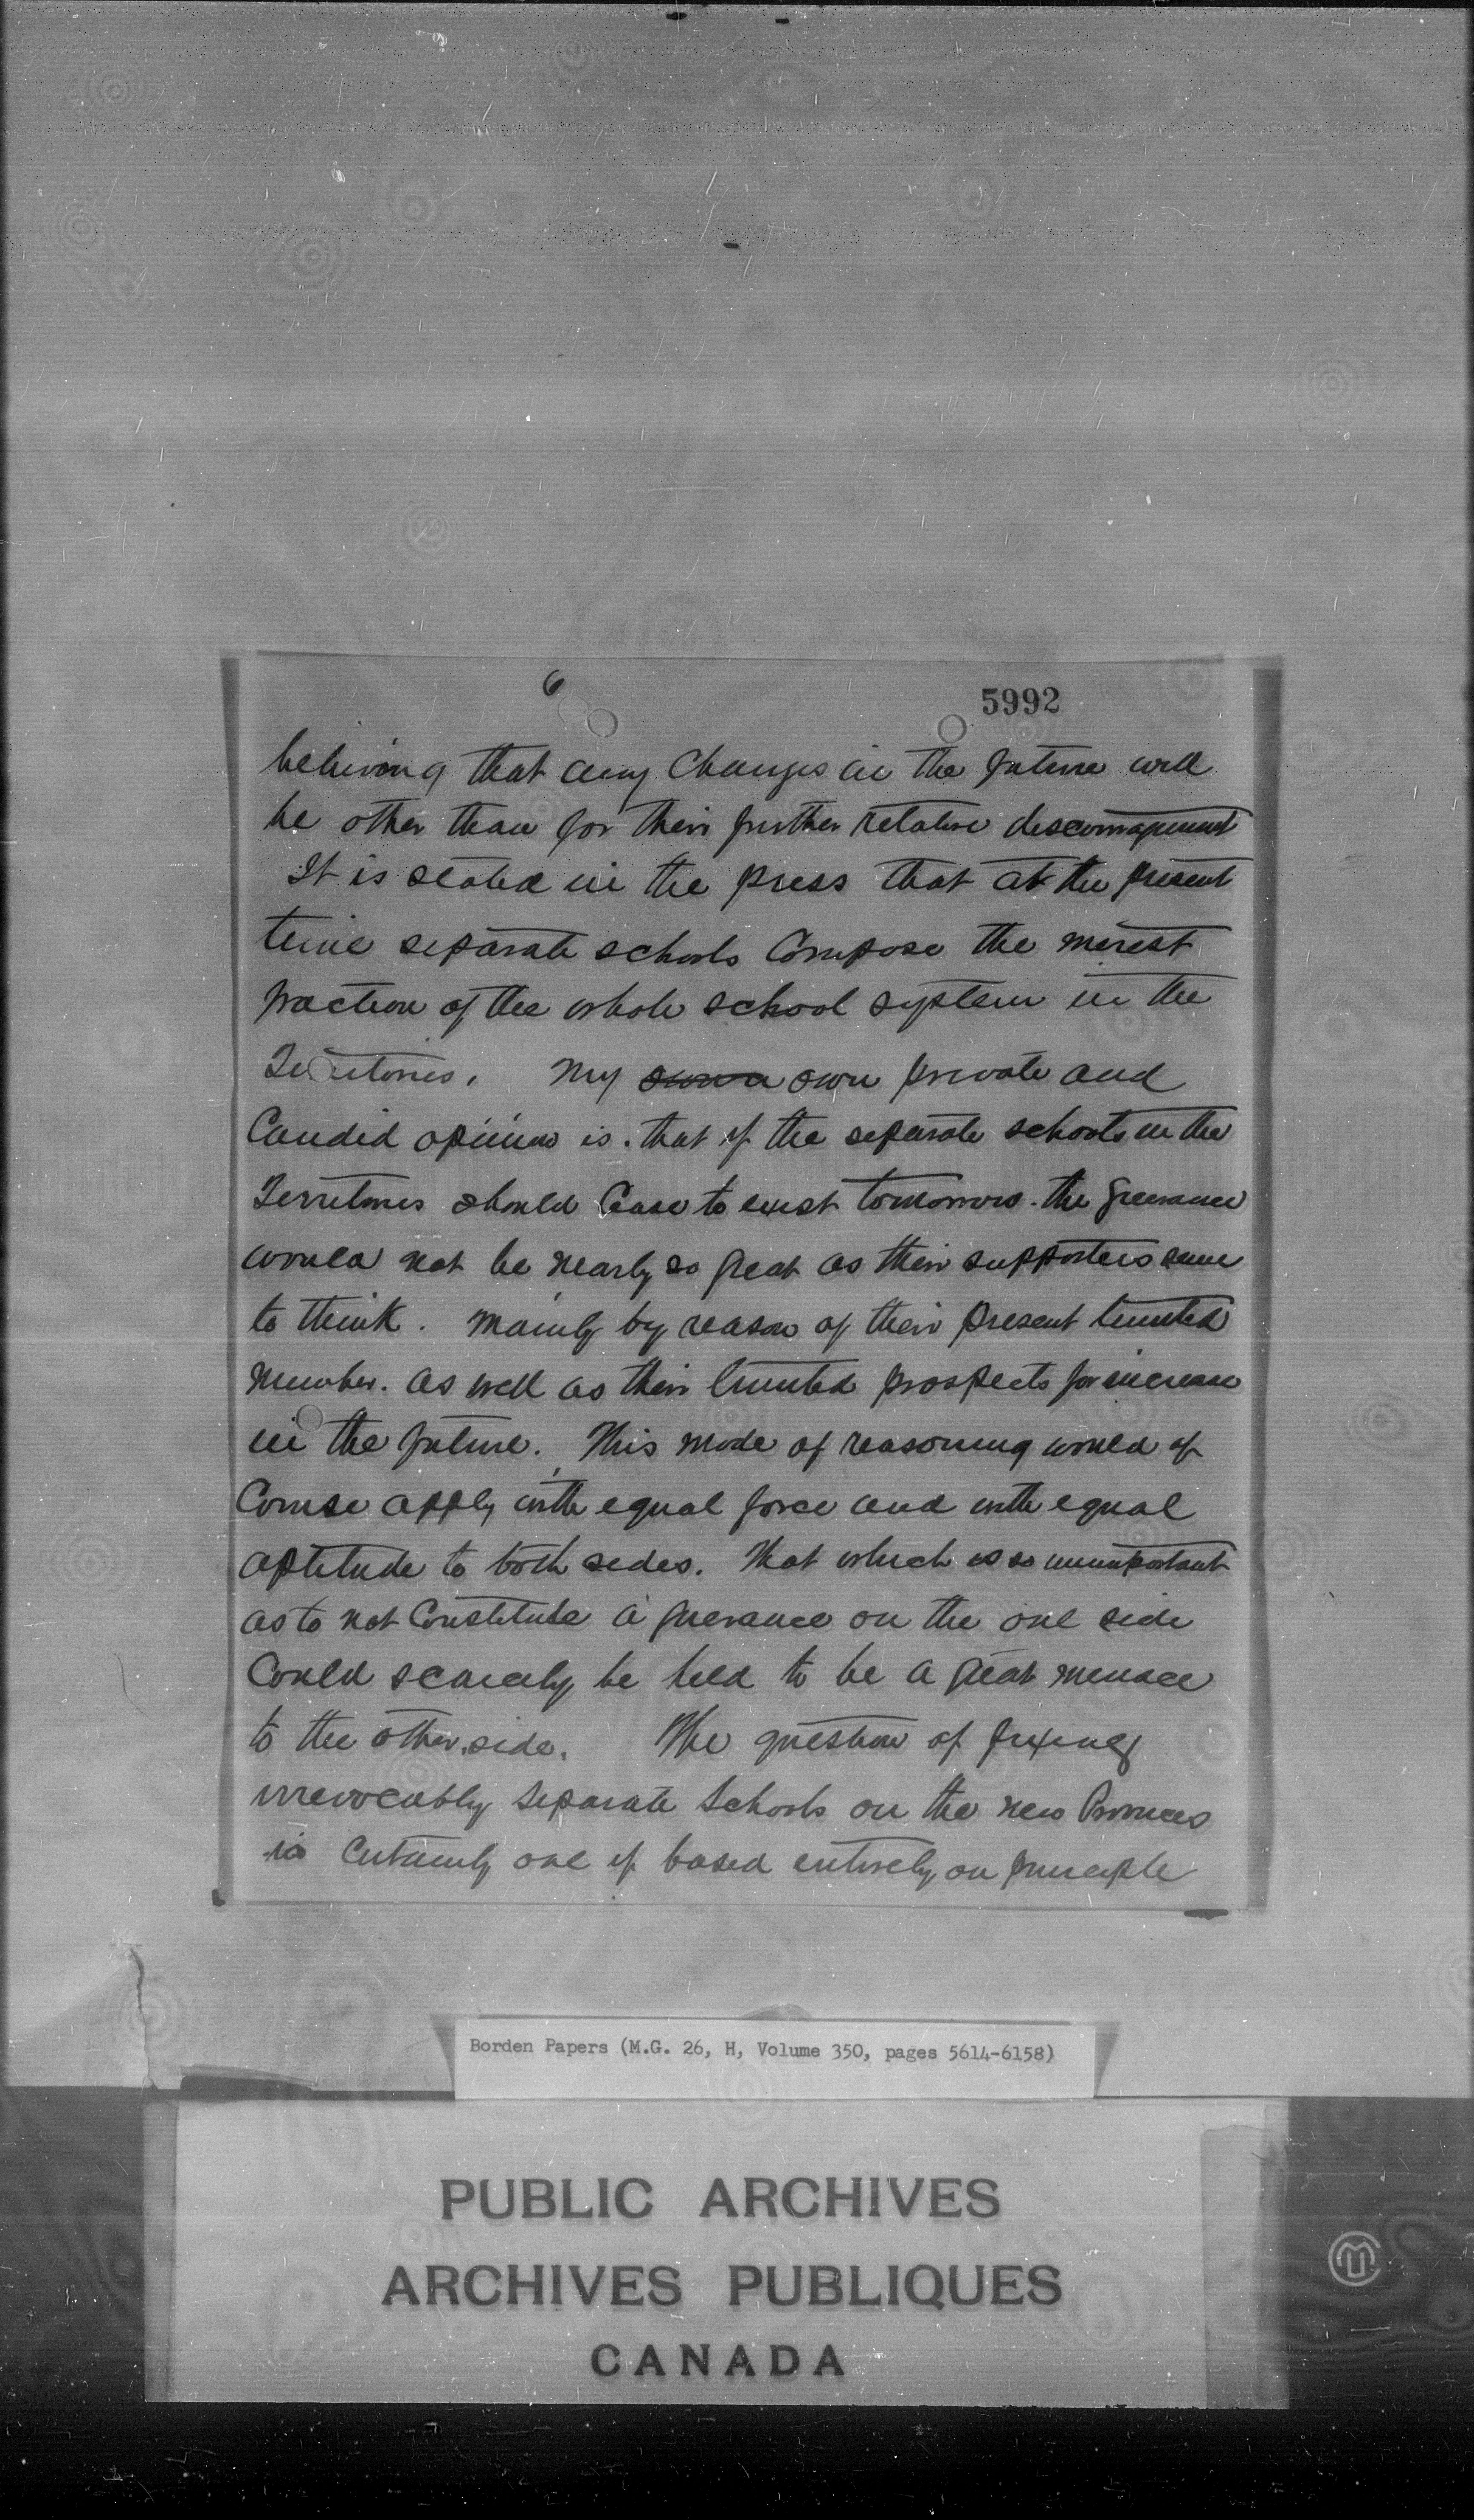 6
5992
believing that any changes in the future will
be other than for their further relative discouragement
It is stated in the press that at the present
time separate schools compose the merest
fraction of the whole school system in the
Territories. My own own private and
Candid opinion is. that if the separate schools in the
Territories should Cease to exist tomorrow. the grievance
would not be nearly so great as their supporters seem
to think. Mainly by reason of their present limited
number. as well as their limited prospects for increase
in the future. This mode of reasoning would of
Course apply with equal force and with equal
aptitude to both sides. That which is so unimportant
as to not Constitute a grievance on the one side
Could scarcely be held to be a great menace
to the other side. The question of fixing
irrevocably separate schools on the new Provinces
is Certainly one if based entirely on principle
Borden Papers (M.G. 26, H, Volume 350, pages 5614-6158)
PUBLIC ARCHIVES
ARCHIVES PUBLIQUES
CANADA